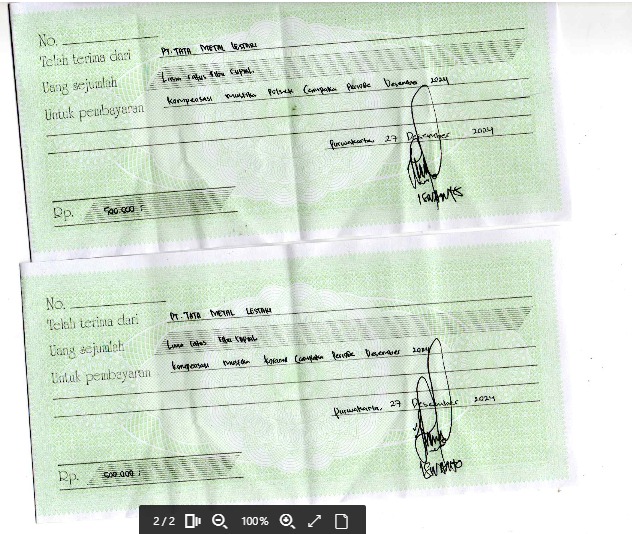 No.
Telah terima dari PT. TATA METAL LESTARI
Uang sejumlah Lima ratus Ribu Rupiah.
Untuk pembayaran Kompensasi Polsek Campaka Periode Desember 2024
Purwakarta, 27 Desember 2024
ISWANTO
Rp. 500.000
No.
Telah terima dari PT. TATA METAL LESTARI
Uang sejumlah Lima ratus Ribu Rupiah
Untuk pembayaran Kompensasi Koramil Campaka Periode Desember 2024
Purwakarta, 27 Desember 2024
ISWANTO
Rp. 500.000
2/2 100%